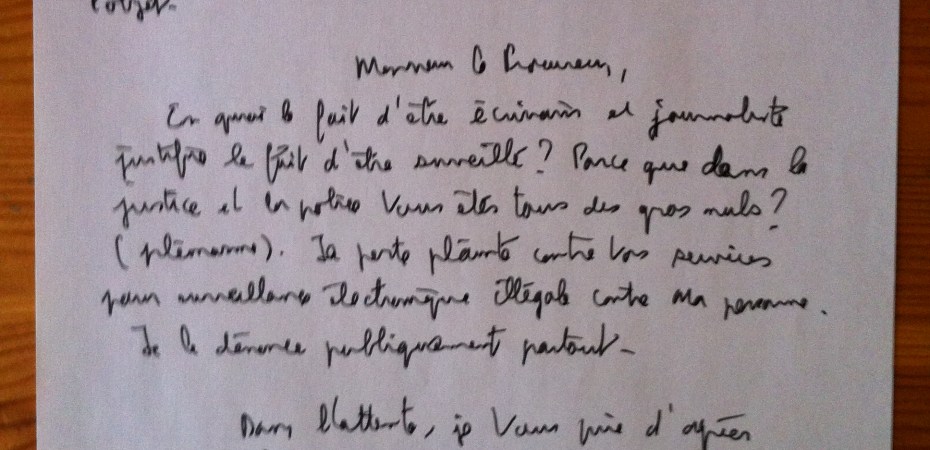 Monsieur le Procureur,
En quoi le fait d'être écrivain et journaliste
justifie le fait d'être surveillé ? Parce que dans la
justice et la police vous êtes tous des gros nuls ?
(pléonasme). Je porte plainte contre vos services
pour surveillance électronique illégale contre ma personne.
Je le dénonce publiquement partout -
Dans l'attente, je vous prie d'agréer